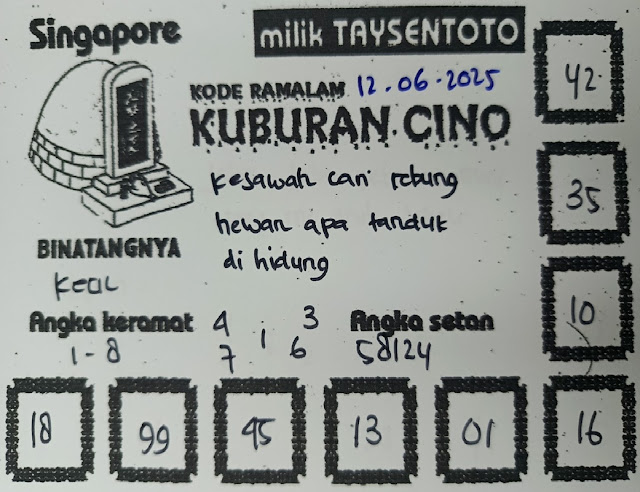 Singapore
milik TAYSENTOTO
KODE RAMALAM 12.06.2025
KUBURAN CINO
42
kesawah cari rebung
hewan apa tanduk
di hidung
35
BINATANGNYA
KECIL
10
Angka keramat 4 3 Angka setan
1-8 7 1 6 58124
18 99 45 13 01 16